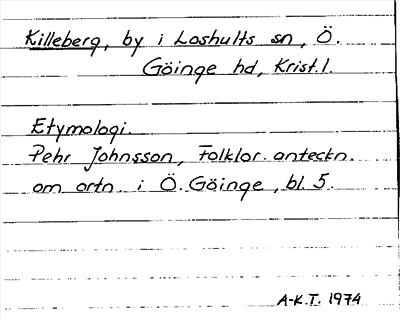 Killeberg, by i Loshults sn, Ö.
Göinge hd, Krist. l.
Etymologi.
Pehr Johnsson, Folklor. anteckn.
om ortn. i Ö. Göinge, bl. 5.
A-K.T. 1974